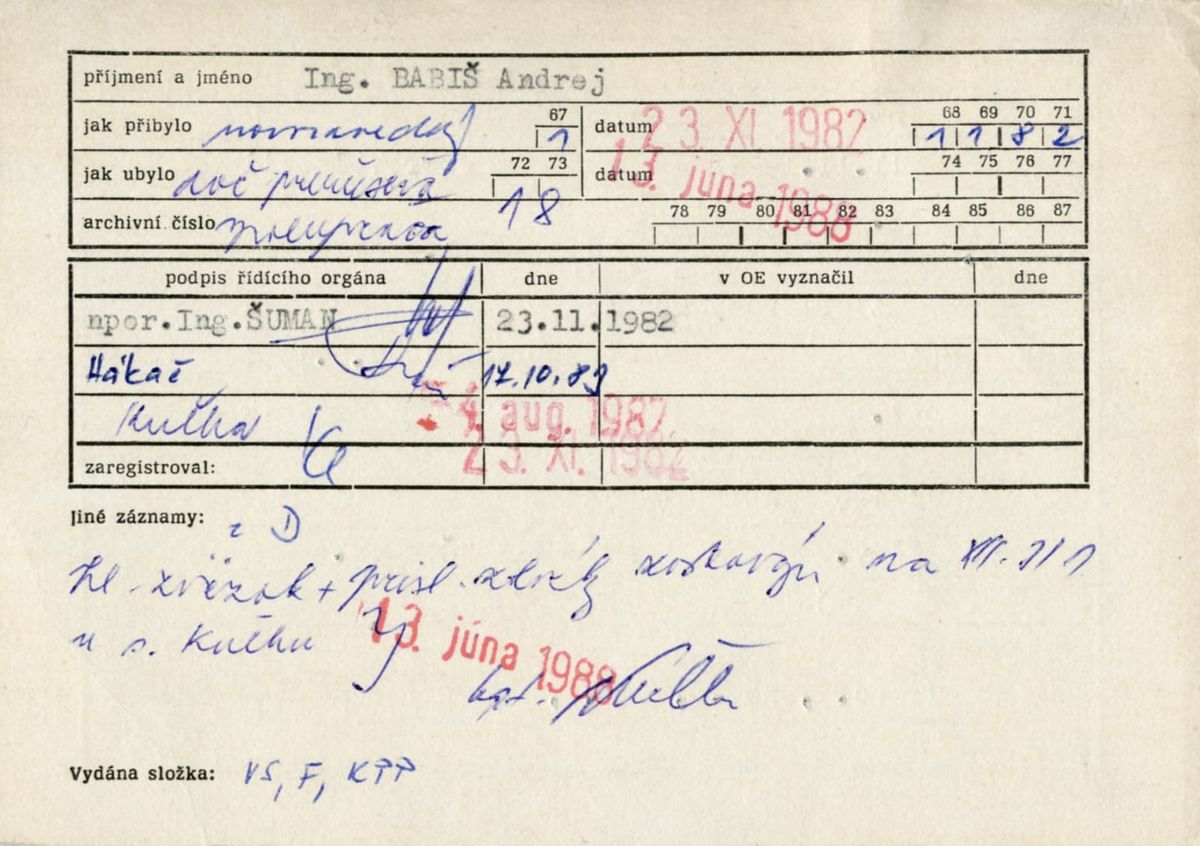 příjmení a jméno Ing. BABIŠ Andrej
jak přibylo novozavedený 67 1 datum 23. XI. 1982 68 69 70 71 1 1 8 2
jak ubylo doč prerušená 72 73 18 datum 13. júna 1988 74 75 76 77
archivní číslo spolupráca 78 79 80 81 82 83 84 85 86 87
podpis řídícího orgána dne v OE vyznačil dne
npor.Ing.ŠUMAN 23.11.1982
Hákač 17.10.83
Kučha 4. aug. 1987
zaregistroval: 23. XI. 1982
Jiné záznamy: D
zväzok + na XII. 
u s. Kuchu 13. júna 1988
kpt.
Vydána složka: VS, F, KPP